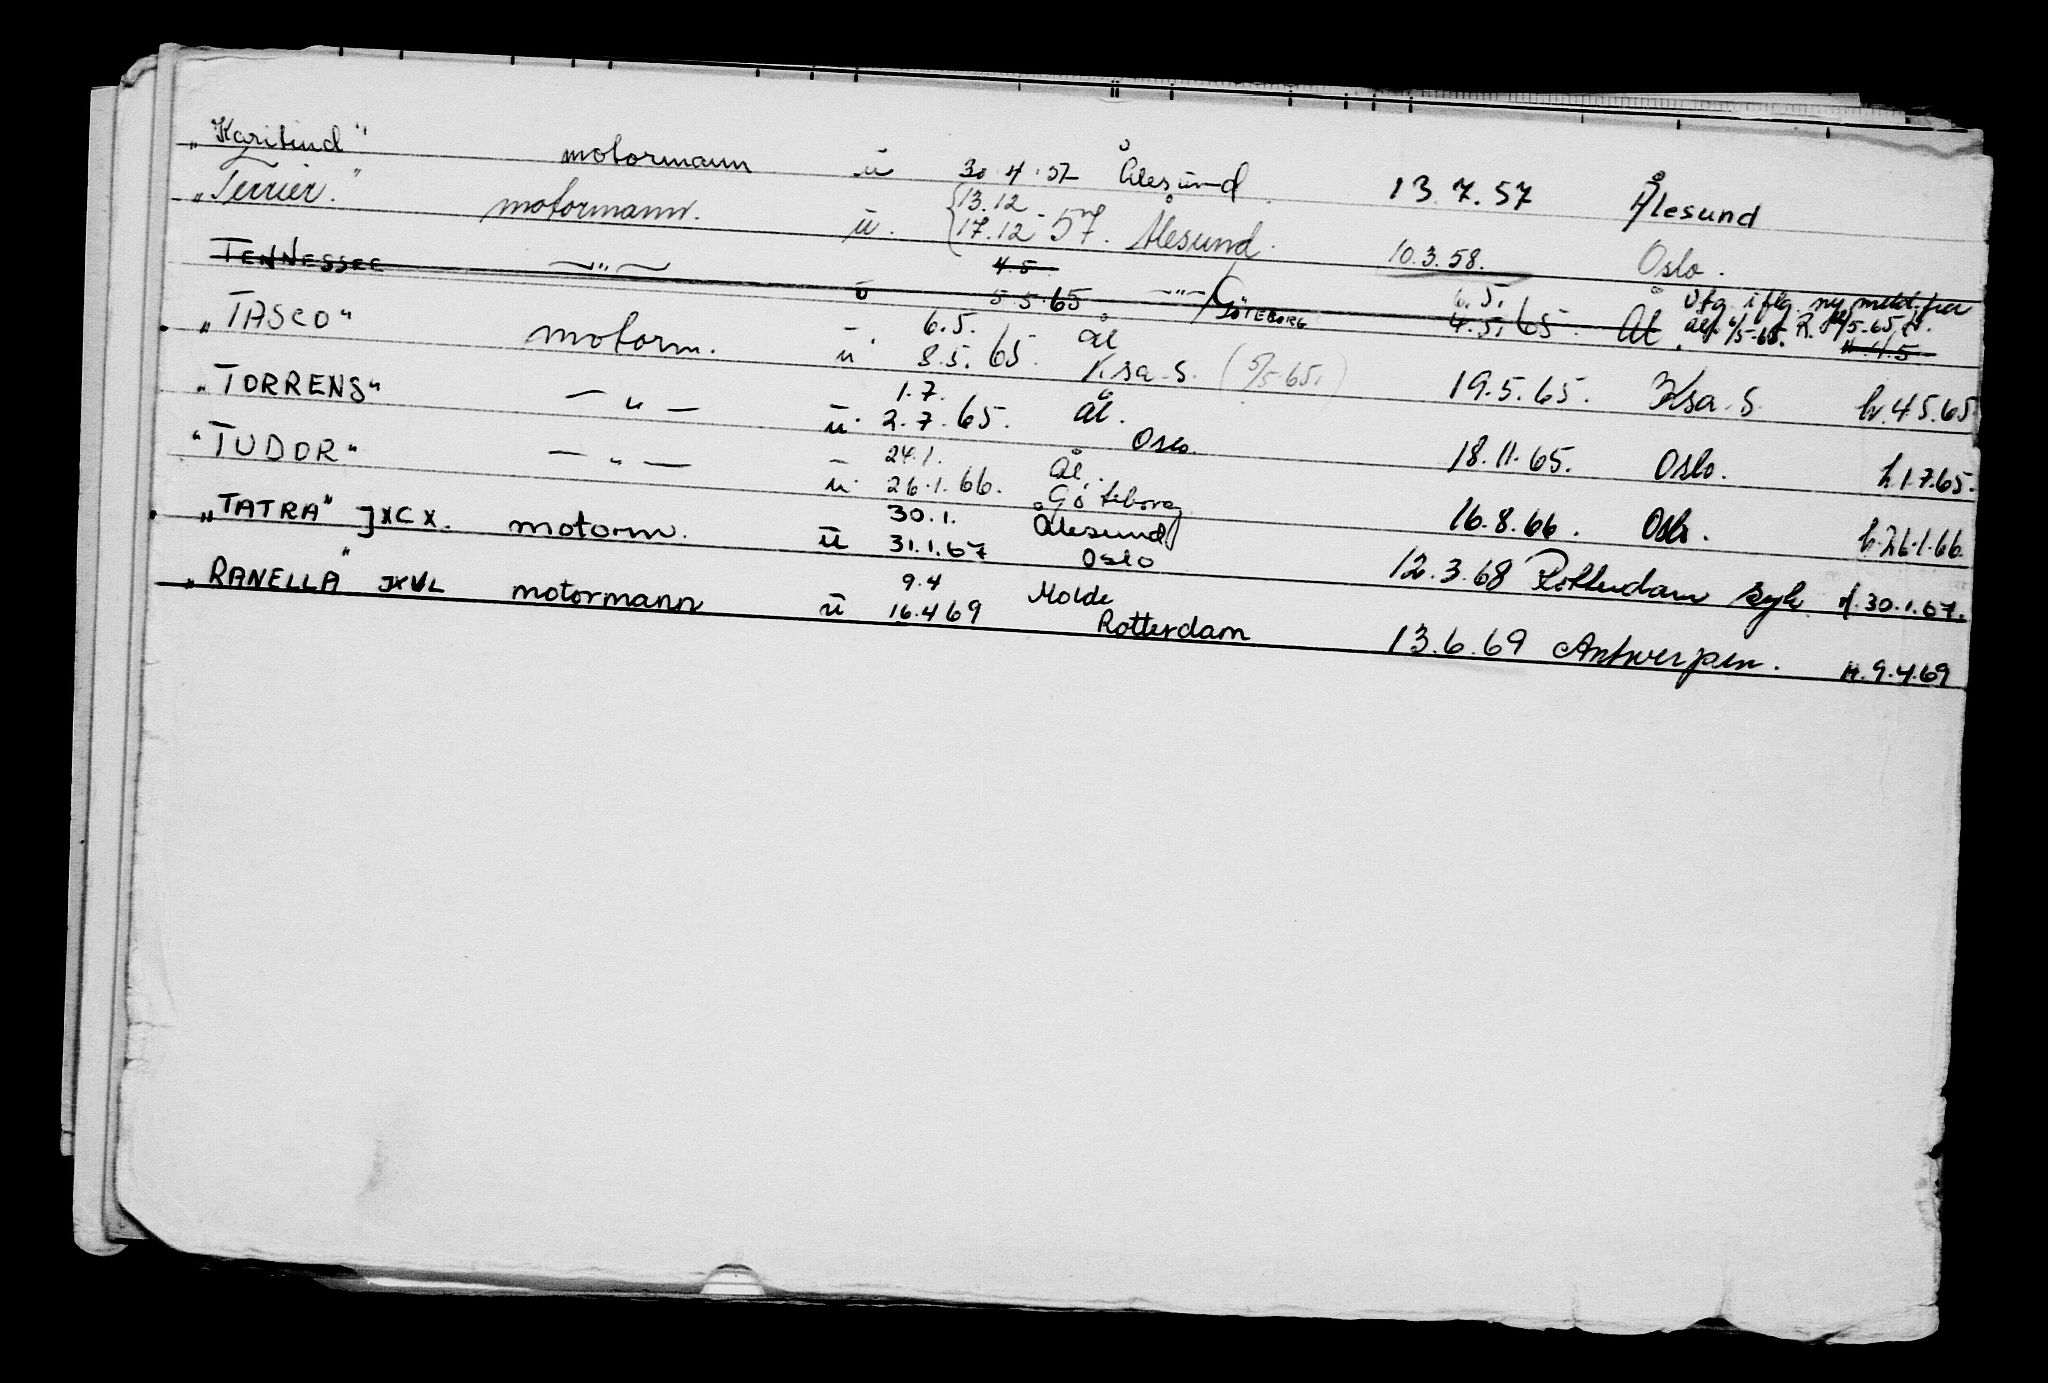 „Karitind" motormann u 30.4.57 Ålesund 13.7.57 Ålesund
„Terrier." motormann. u. {13.12 17.12-57. Ålesund. 10.3.58. Oslo.
TENNESSEE —"— u 4.5. 5.5.65 —"—/GÖTEBORG 6.5. 4.5.65. Ål. Utg. iflg. ny meld. fra Ål. 6/5-65. H.4.5
„TASCO" motorm. u. 6.5. 8.5.65. Ål Ksa.S. (5/5 65.) 19.5.65. Ksa.S. h.4.5.65
„TORRENS" —"— u. 1.7. 2.7.65. Ål. Oslo. 18.11.65. Oslo. h.1.7.65.
"TUDOR" —"— u. 24.1. 26.1.66. Ål. Göteborg. 16.8.66. Oslo. h.26.1.66
„TATRA" JXCX. motorm. u 30.1. 31.1.67 Ålesund Oslo 12.3.68 Rotterdam syk. H.30.1.67.
„RANELLA" JXVL motormann u 9.4 16.4 69 Molde Rotterdam 13.6.69 Antwerpen. H.9.4.69